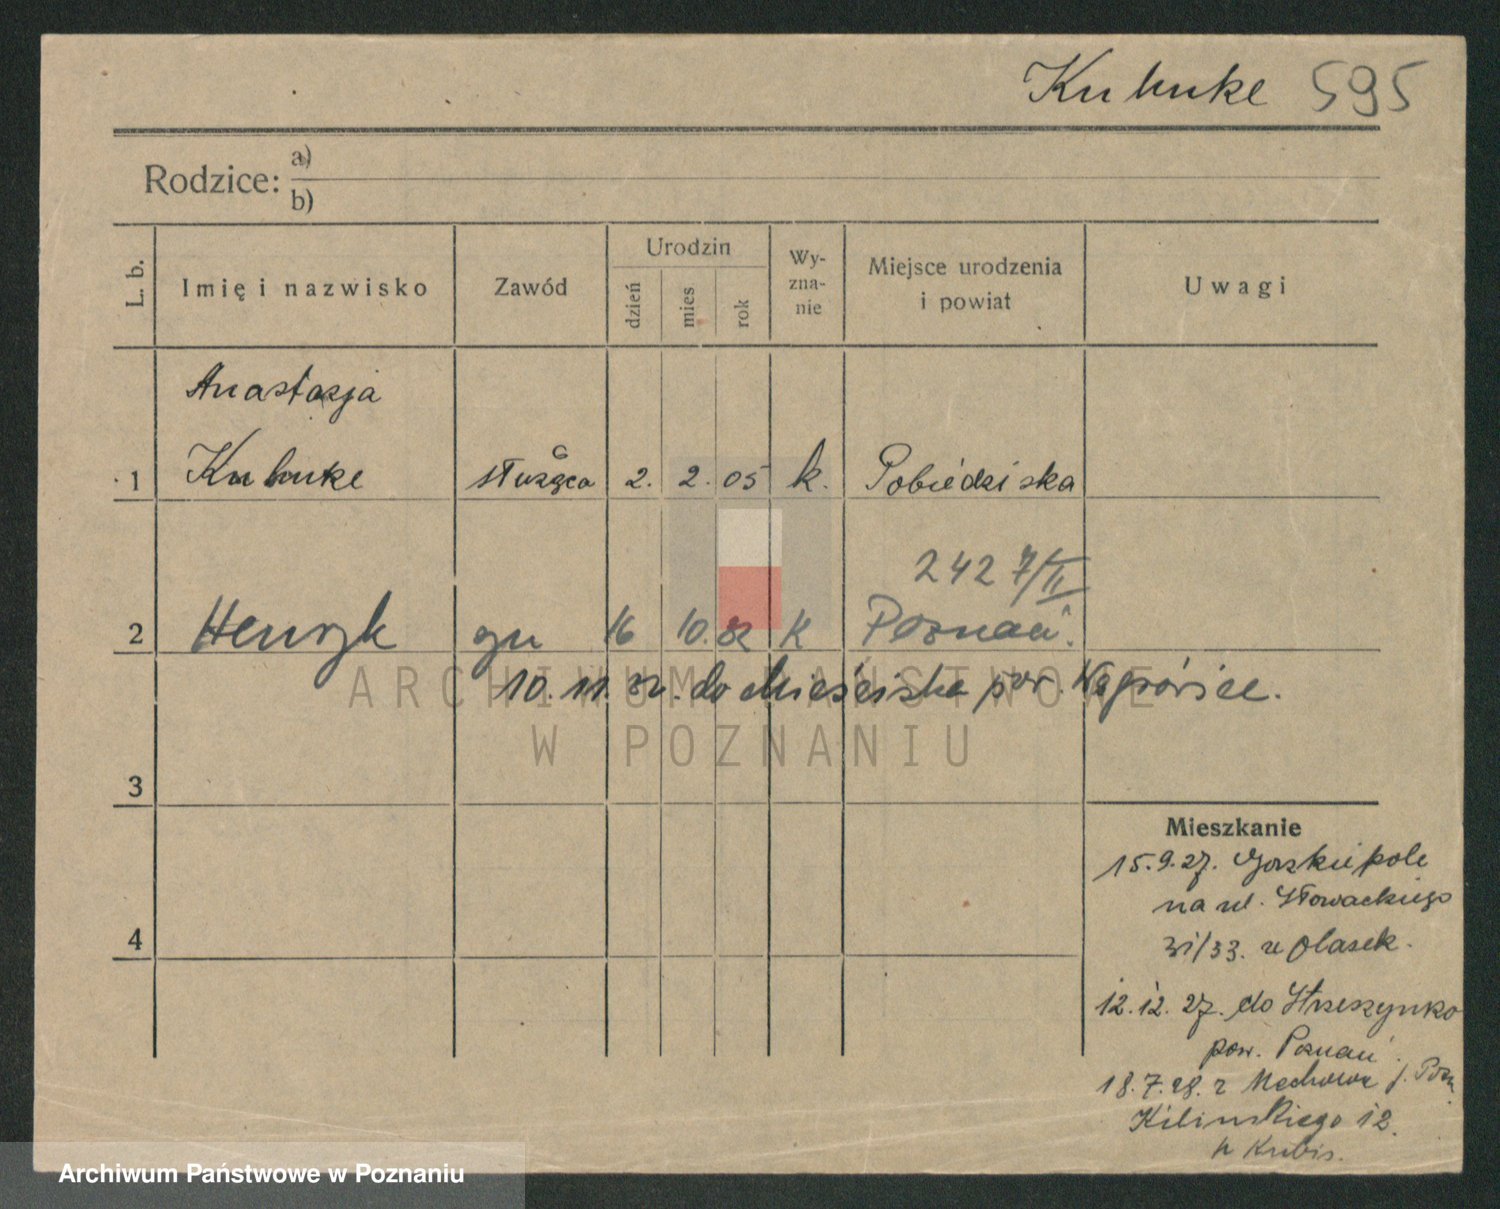 595
Rodzice: a)
b)
L. b.
Imię i nazwisko
Zawód
Urodzin
dzień
mies
rok
Wy-
zna-
nie
Miejsce urodzenia
i powiat
Uwagi
Anastazja
1 służąca 2. 2. 05 k. Pobiedziska
2427/II
2 Henryk 16 10. 32 K Poznań.
10. 11. 32. do Mieściska pow. Wągrówiec.
3
4
Mieszkanie
15.9.27.
na ul. Słowackiego
31/33. u Olasek.
12.12.27. do Strzeszynko
pow. Poznań.
18.7.28. z
Kilinskiego 12.
u Kubis.
ARCHIWUM PAŃSTWOWE
W POZNANIU
Archiwum Państwowe w Poznaniu